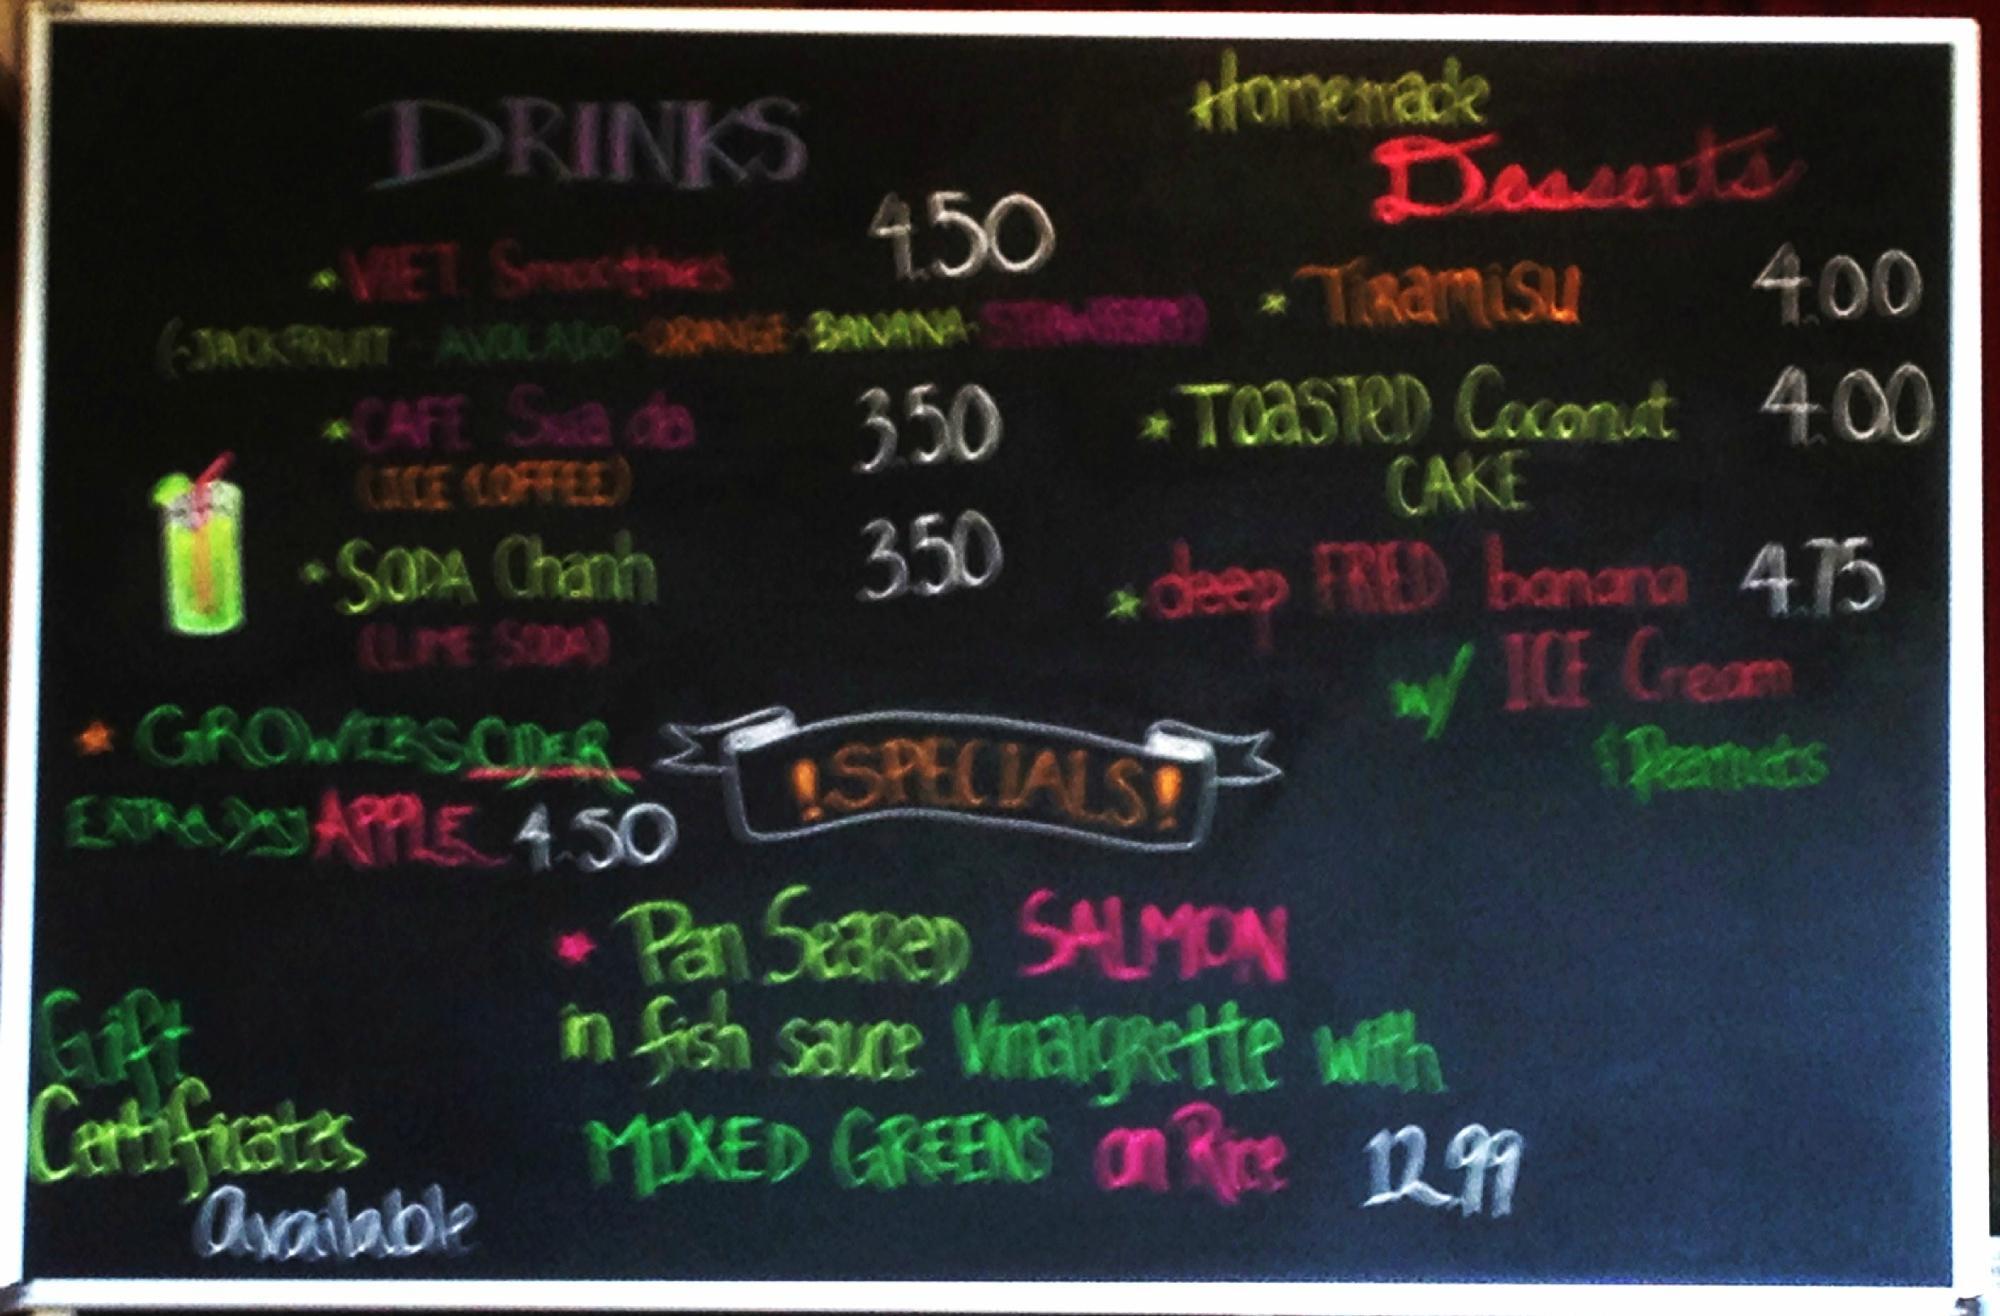 DRINKS
* VIET. Smoothies 4.50
(-JACKFRUIT - AVOCADO - ORANGE - BANANA - STRAWBERRY)
* CAFE Sua da 3.50
(ICE COFFEE)
* SODA Chanh 3.50
(LIME SODA)
* GROWERS CIDER
EXTRA DRY APPLE 4.50
Homemade
Desserts
* TIRAMISU 4.00
* TOASTED Coconut 4.00
CAKE
* deep FRIED banana 4.75
w/ ICE Cream
& Peanuts
!SPECIALS!
* Pan Seared SALMON
in fish sauce Vinaigrette with
MIXED GREENS on Rice 12.99
Gift
Certificates
available